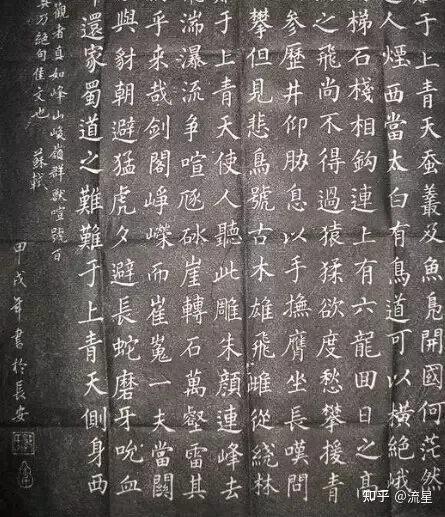 于上青天蚕叢及魚鳧開國何茫然
人煙西當太白有鳥道可以横絶峨
梯石棧相鈎連上有六龍回日之高
之飛尚不得過猿猱欲度愁攀援青
参歷井仰胁息以手撫膺坐長嘆問
攀但見悲鳥號古木雄飛雌從繞林
于上青天使人聽此雕朱顔連峰去
湍瀑流争喧豗砯崖轉石萬壑雷其
乎来哉劍閣崢嶸而崔嵬一夫當關
與豺朝避猛虎夕避長蛇磨牙吮血
還家蜀道之難難于上青天側身西
觀者真如峰山峻嶺群獸喧號百
万絶句佳文也 蘇軾
甲戌年書於長安
知乎 @流星